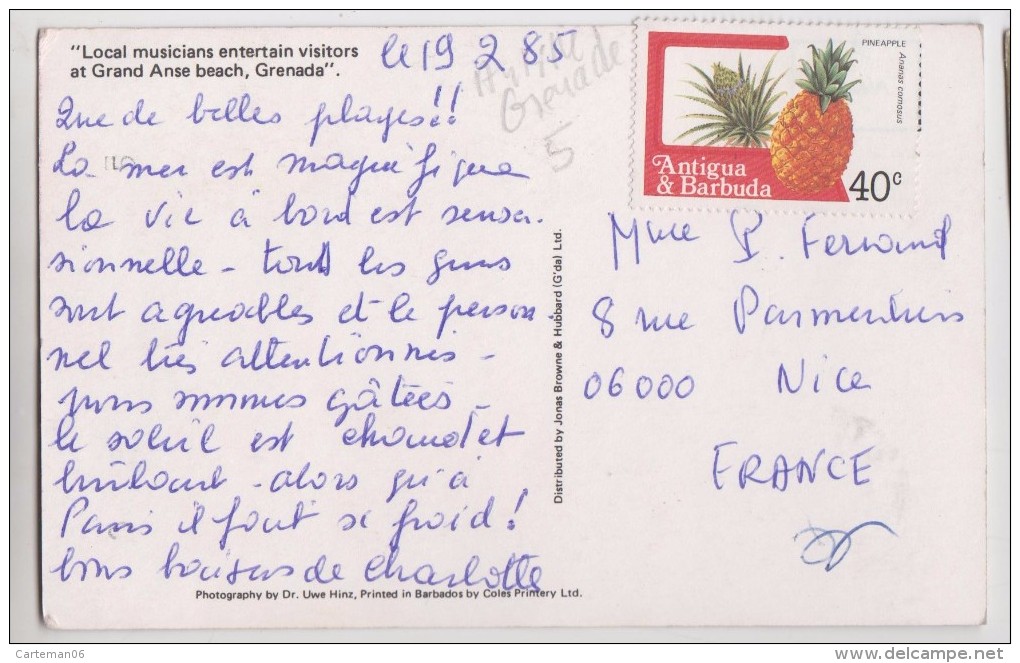 "Local musicians entertain visitors
at Grand Anse beach, Grenada".
le 19 2 85
Que de belles plages!!
La mer est magnifique
la vie à bord est sensa-
sionnelle - tous les gens
sont agréables et le person-
nel très attentionnés -
nous sommes gâtées -
le soleil est chaud et
brûlant - alors qu'à
Paris il fait si froid!
bons baisers de Charlotte
Photography by Dr. Uwe Hinz, Printed in Barbados by Coles Printery Ltd.
Distributed by Jonas Browne & Hubbard (G'da) Ltd.
Grenade
5
PINEAPPLE
Ananas comosus
Antigua
& Barbuda
40c
Mme P. Ferrand
8 rue Parmentier
06000 Nice
FRANCE
Carteman06
delcampe.net